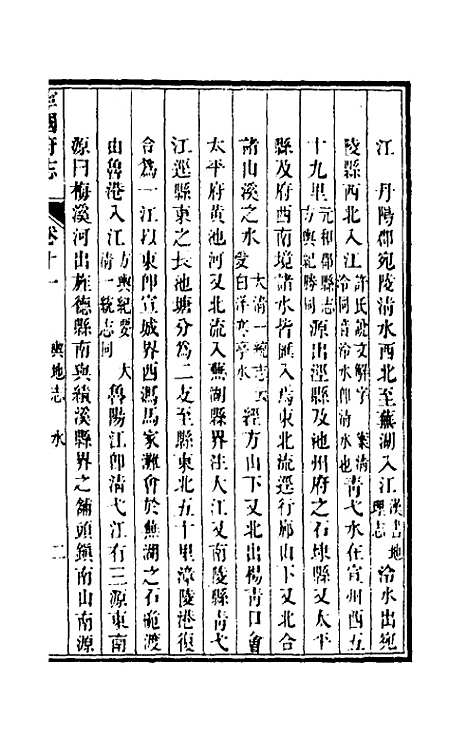 江 丹陽郡宛陵清水西北至蕪湖入江漢書地理志泠水出宛
陵縣西北入江許氏說文解字 案清泠同音泠水卽清水也青弋水在宣州西五
十九里元和郡縣志方輿紀勝同源出涇縣及池州府之石埭縣又太平
縣及府西南境諸水皆匯入焉東北流逕行廊山下又北合
諸山溪之水大清一統志云受白洋亭水經方山下又北出楊青口會
太平府黃池河又北流入蕪湖縣界注大江又南陵縣青弋
江逕縣東之長池塘分爲二支至縣東北五十里漳陵港復
合爲一江以東卽宣城界西馮馬家灘會於蕪湖之石硊渡
由魯港入江方輿紀要 大清一統志同魯陽江卽清弋江有三源東南
源曰梅溪河出旌德縣南與績溪縣界之鋪頭鎮南山南源
寧國府志 卷十一 輿地志 水 二